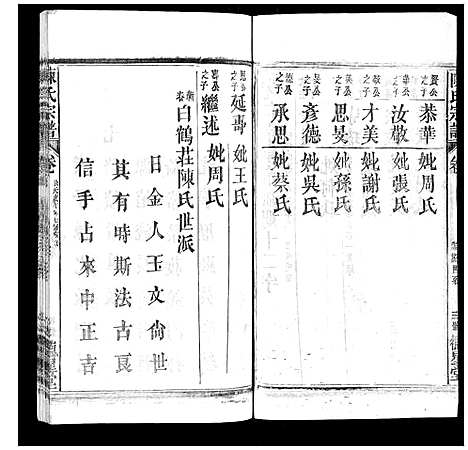 陳氏宗譜
賢公之子 恭華 妣周氏
華公之子 汝敬 妣張氏
敬公之子 才美 妣謝氏
美公之子 思旻 妣孫氏
旻公之子 彥德 妣吳氏
德公之子 承思 妣蔡氏
思公之子 延哥 妣王氏
哥公之子 繼述 妣周氏
白鶴莊陳氏世派
日金人玉文尚世
其有時斯法古良
信手占來中正吉
陳氏宗譜 卷